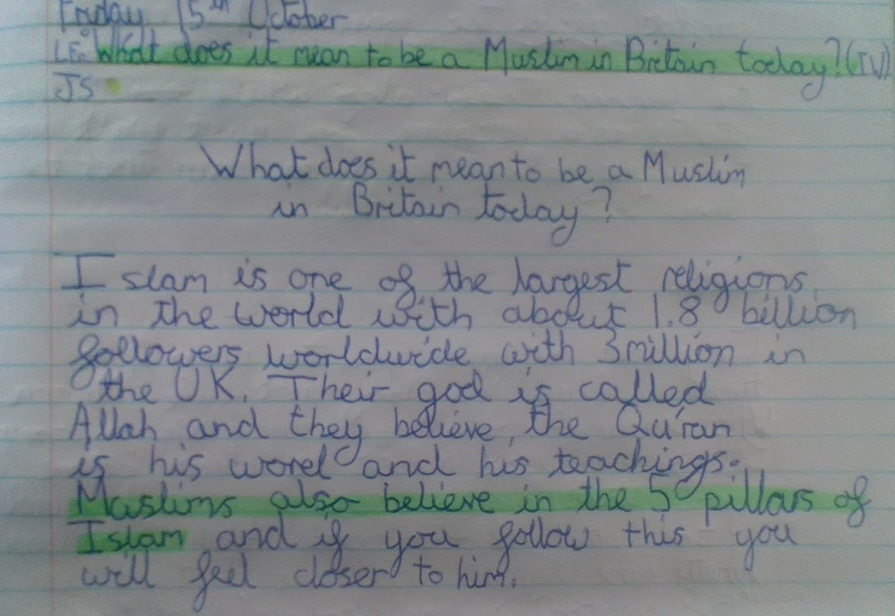 Friday 15th October
LF: What does it mean to be a Muslim in Britain today? (IV)
JS
What does it mean to be a Muslim
in Britain today?
Islam is one of the largest religions
in the world with about 1.8 billion
followers worldwide with 3 million in
the UK. Their god is called
Allah and they believe, the Qu'ran
is his word and his teachings.
Muslims also believe in the 5 pillars of
Islam and if you follow this you
will feel closer to him.